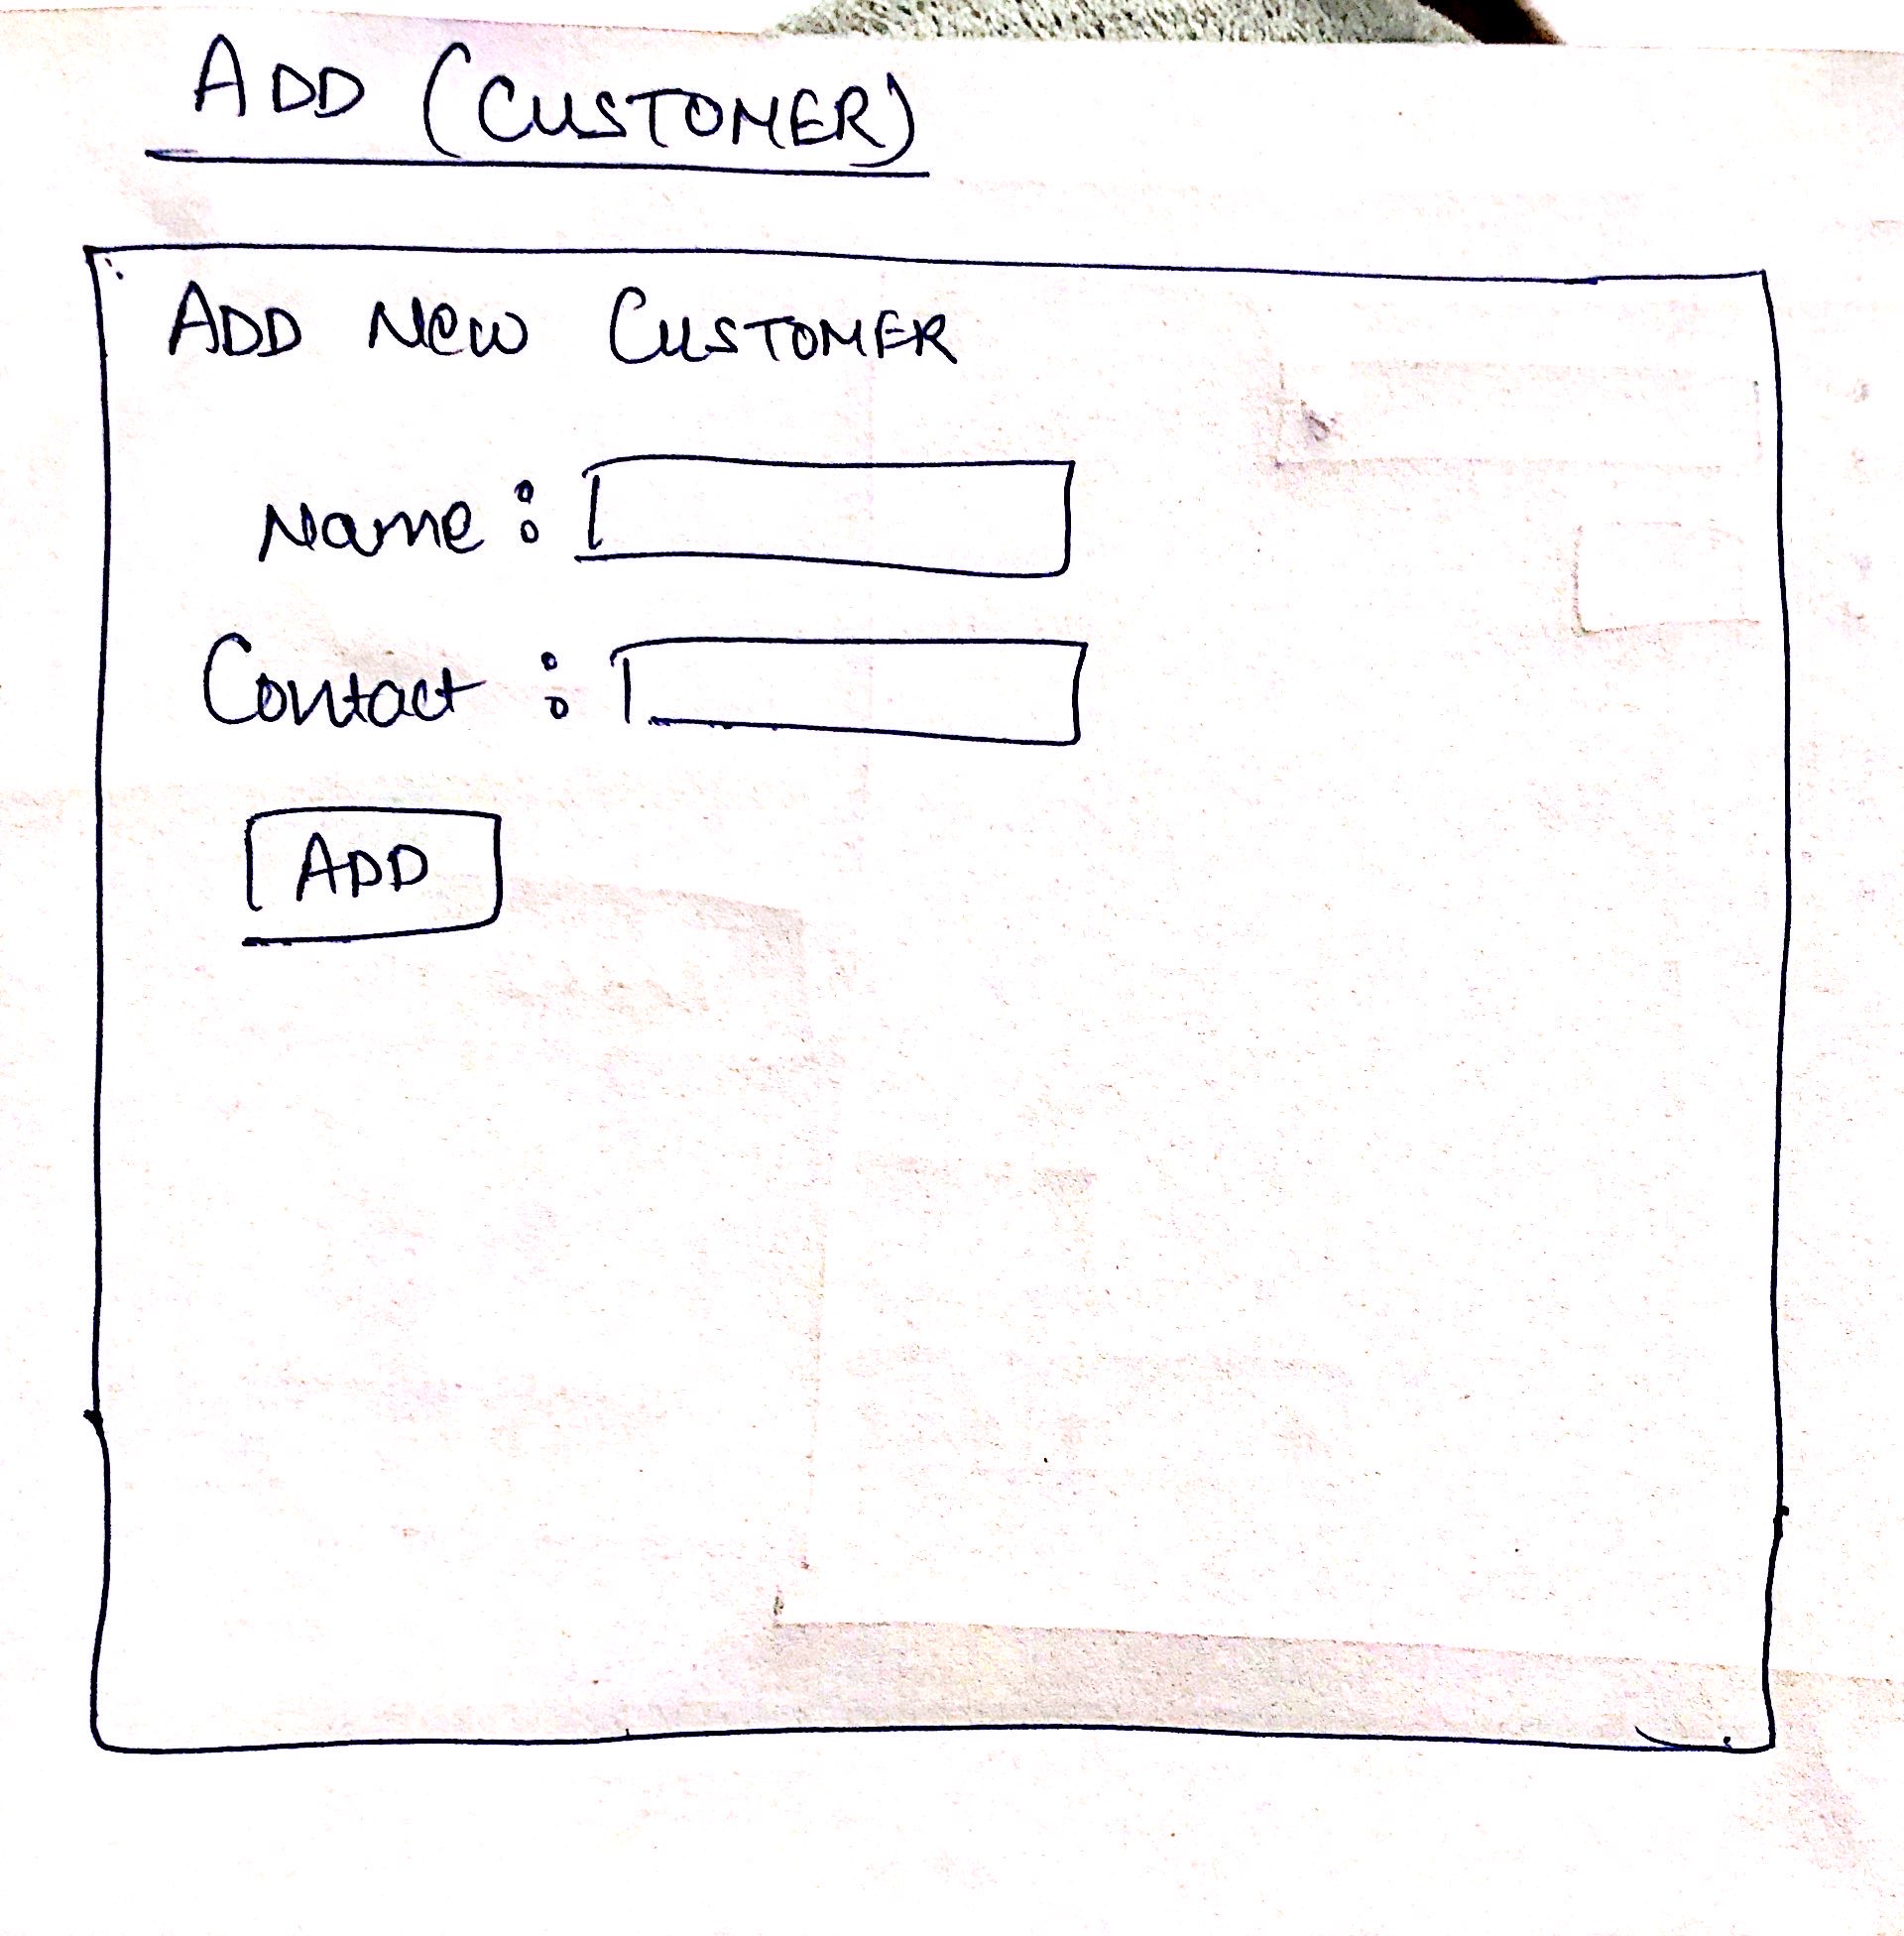 ADD (CUSTOMER)
ADD New CUSTOMER
Name :
Contact :
ADD